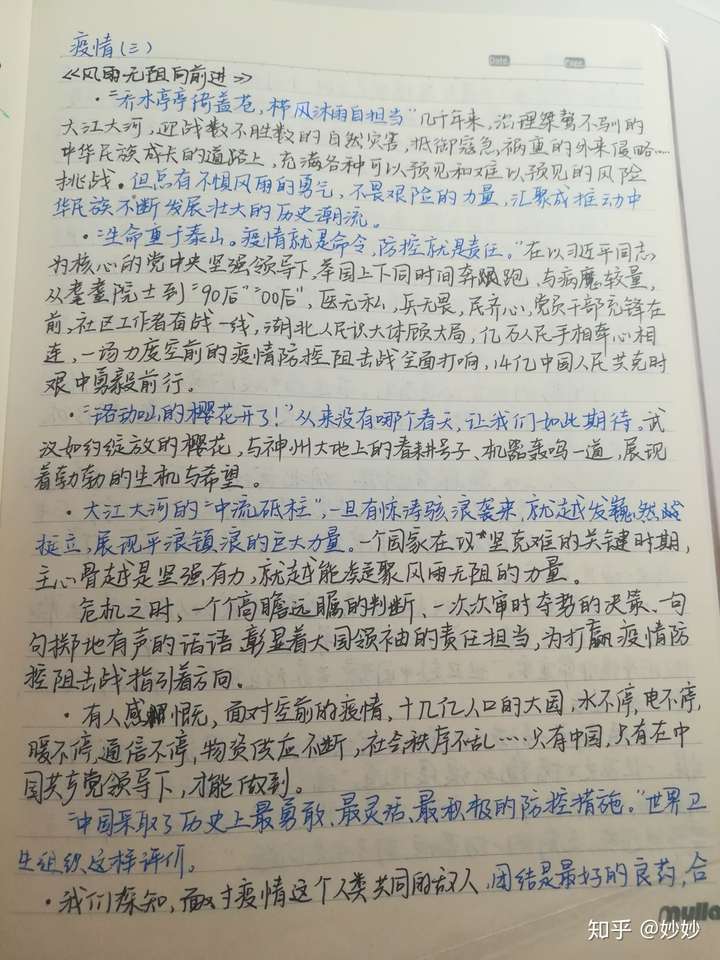 疫情(三)
Date Page
《风雨无阻向前进》
·“乔木亭亭倚盖苍,栉风沐雨自担当”几千年来,治理桀骜不驯的
大江大河,迎战数不胜数的自然灾害,抵御寇急祸重的外来侵略……
中华民族成长的道路上,充满各种可以预见和难以预见的风险
挑战。但总有不惧风雨的勇气,不畏艰险的力量,汇聚成推动中
华民族不断发展壮大的历史潮流。
·“生命重于泰山。疫情就是命令,防控就是责任。”在以习近平同志
为核心的党中央坚强领导下,举国上下同时间赛跑,与病魔较量,
从耄耋院士到“90后”“00后”,医无私,兵无畏,民齐心,党员干部先锋在
前,社区工作者奋战一线,湖北人民识大体顾大局,亿万人民手相牵心相
连,一场力度空前的疫情防控阻击战全面打响,14亿中国人民共克时
艰中勇毅前行。
·“珞珈山的樱花开了!”从来没有哪个春天,让我们如此期待。武
汉如约绽放的樱花,与神州大地上的春耕号子、机器轰鸣一道,展现
着勃勃的生机与希望。
·大江大河的“中流砥柱”,一旦有惊涛骇浪袭来,就越发巍然
挺立,展现平浪镇浪的巨大力量。一个国家在攻坚克难的关键时期,
主心骨越是坚强有力,就越能凝聚风雨无阻的力量。
危机之时,一个个高瞻远瞩的判断、一次次审时夺势的决策、句
句掷地有声的话语 彰显着大国领袖的责任担当,为打赢疫情防
控阻击战指引着方向。
·有人感慨,面对空前的疫情,十几亿人口的大国,水不停,电不停,
暖不停,通信不停,物资供应不断,社会秩序不乱……只有中国,只有在中
国共产党领导下,才能做到。
“中国采取了历史上最勇敢、最灵活、最积极的防控措施。”世界卫
生组织这样评价。
·我们深知,面对疫情这个人类共同的敌人,团结是最好的良药,合
知乎 @妙妙